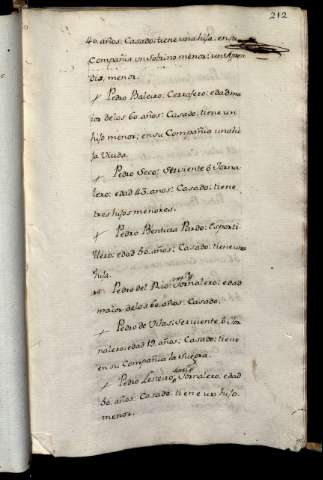 212
40. años. Casado: tiene una hija. en su
Compañia un Sobrino menor: un Apren
diz, menor.
+ Pedro Baleiro: Corrafero: edad ma
ior de los 60. años: Casado: tiene un
hijo menor; en su Compañia una hi
ja Viuda.
+ Pedro Seco; Serviente ô Jorna
lero: edad 43. años: Casado: tiene
tres hijos menores.
+ Pedro Benticia Pardo: Esporti
llero: edad 50. años: Casado: tiene una
hija.
Pedro del Rio: Jornalero: edad
maior de los 60. años: Casado.
+ Pedro de Vilas; Serviente, ô Jor
nalero, edad 19. años: Casado: tiene
en su Compañia la Suegra.
+ Pedro Lesteiro Jornalero, edad
50. años. Casado tiene un hijo.
menor.